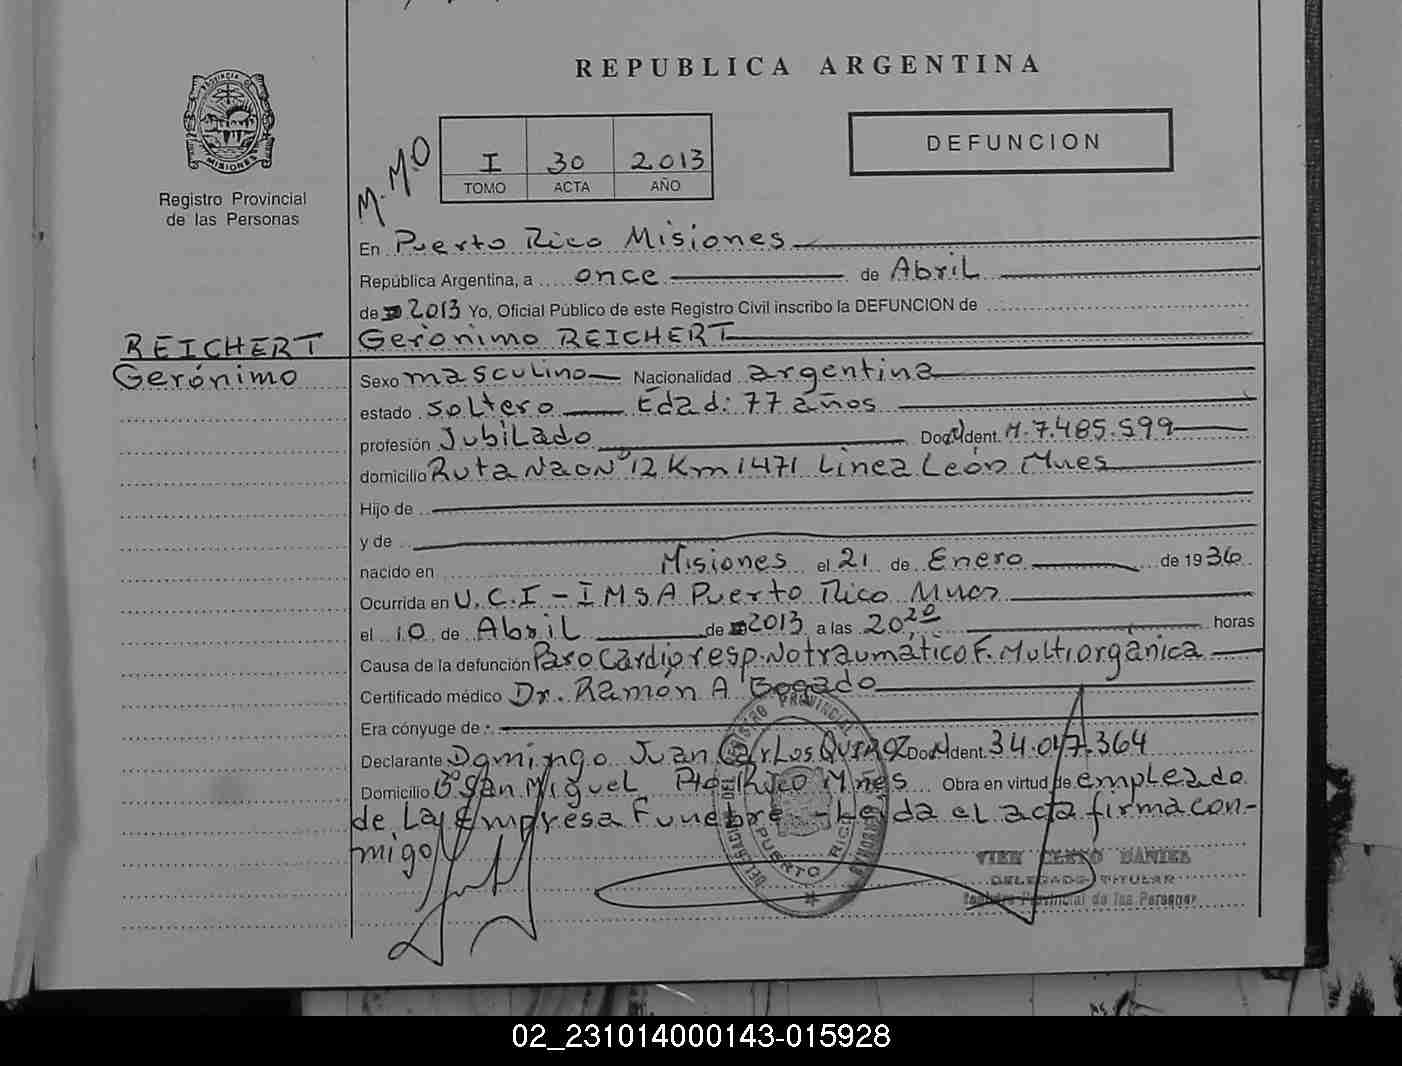 REPUBLICA ARGENTINA
PROVINCIA
MISIONES
Registro Provincial
de las Personas
M.M.O
I 30 2.013
TOMO ACTA AÑO
DEFUNCION
En Puerto Rico Misiones
República Argentina, a once de Abril
de 2013 Yo, Oficial Público de este Registro Civil inscribo la DEFUNCION de
REICHERT
Gerónimo
Gerónimo REICHERT
Sexo masculino Nacionalidad argentina
estado soltero Edad: 77 años
profesión Jubilado Doc. Ident. M.7.485.599
domicilio Ruta Nac Nº 12 Km 1471 Linea León Mnes
Hijo de
y de
nacido en Misiones el 21 de Enero de 1936
Ocurrida en U.C.I - IMSA Puerto Rico Mnes
el 10 de Abril de 2013 a las 20,20 horas
Causa de la defunción Paro Cardioresp. No traumático F. Multiorgánica
Certificado médico Dr. Ramón A Bogado
Era cónyuge de :
Declarante Domingo Juan Carlos QUIROZ Doc. Ident. 34.047.364
Domicilio Bº San Miguel Pto Rico Mnes Obra en virtud de empleado
de La Empresa Funebre.- Leida el acta firma con-
migo
DELEGACION DEL REGISTRO PROVINCIAL
PUERTO RICO
DANIEL
DELEGADO TITULAR
Registro Provincial de las Personas
02_231014000143-015928